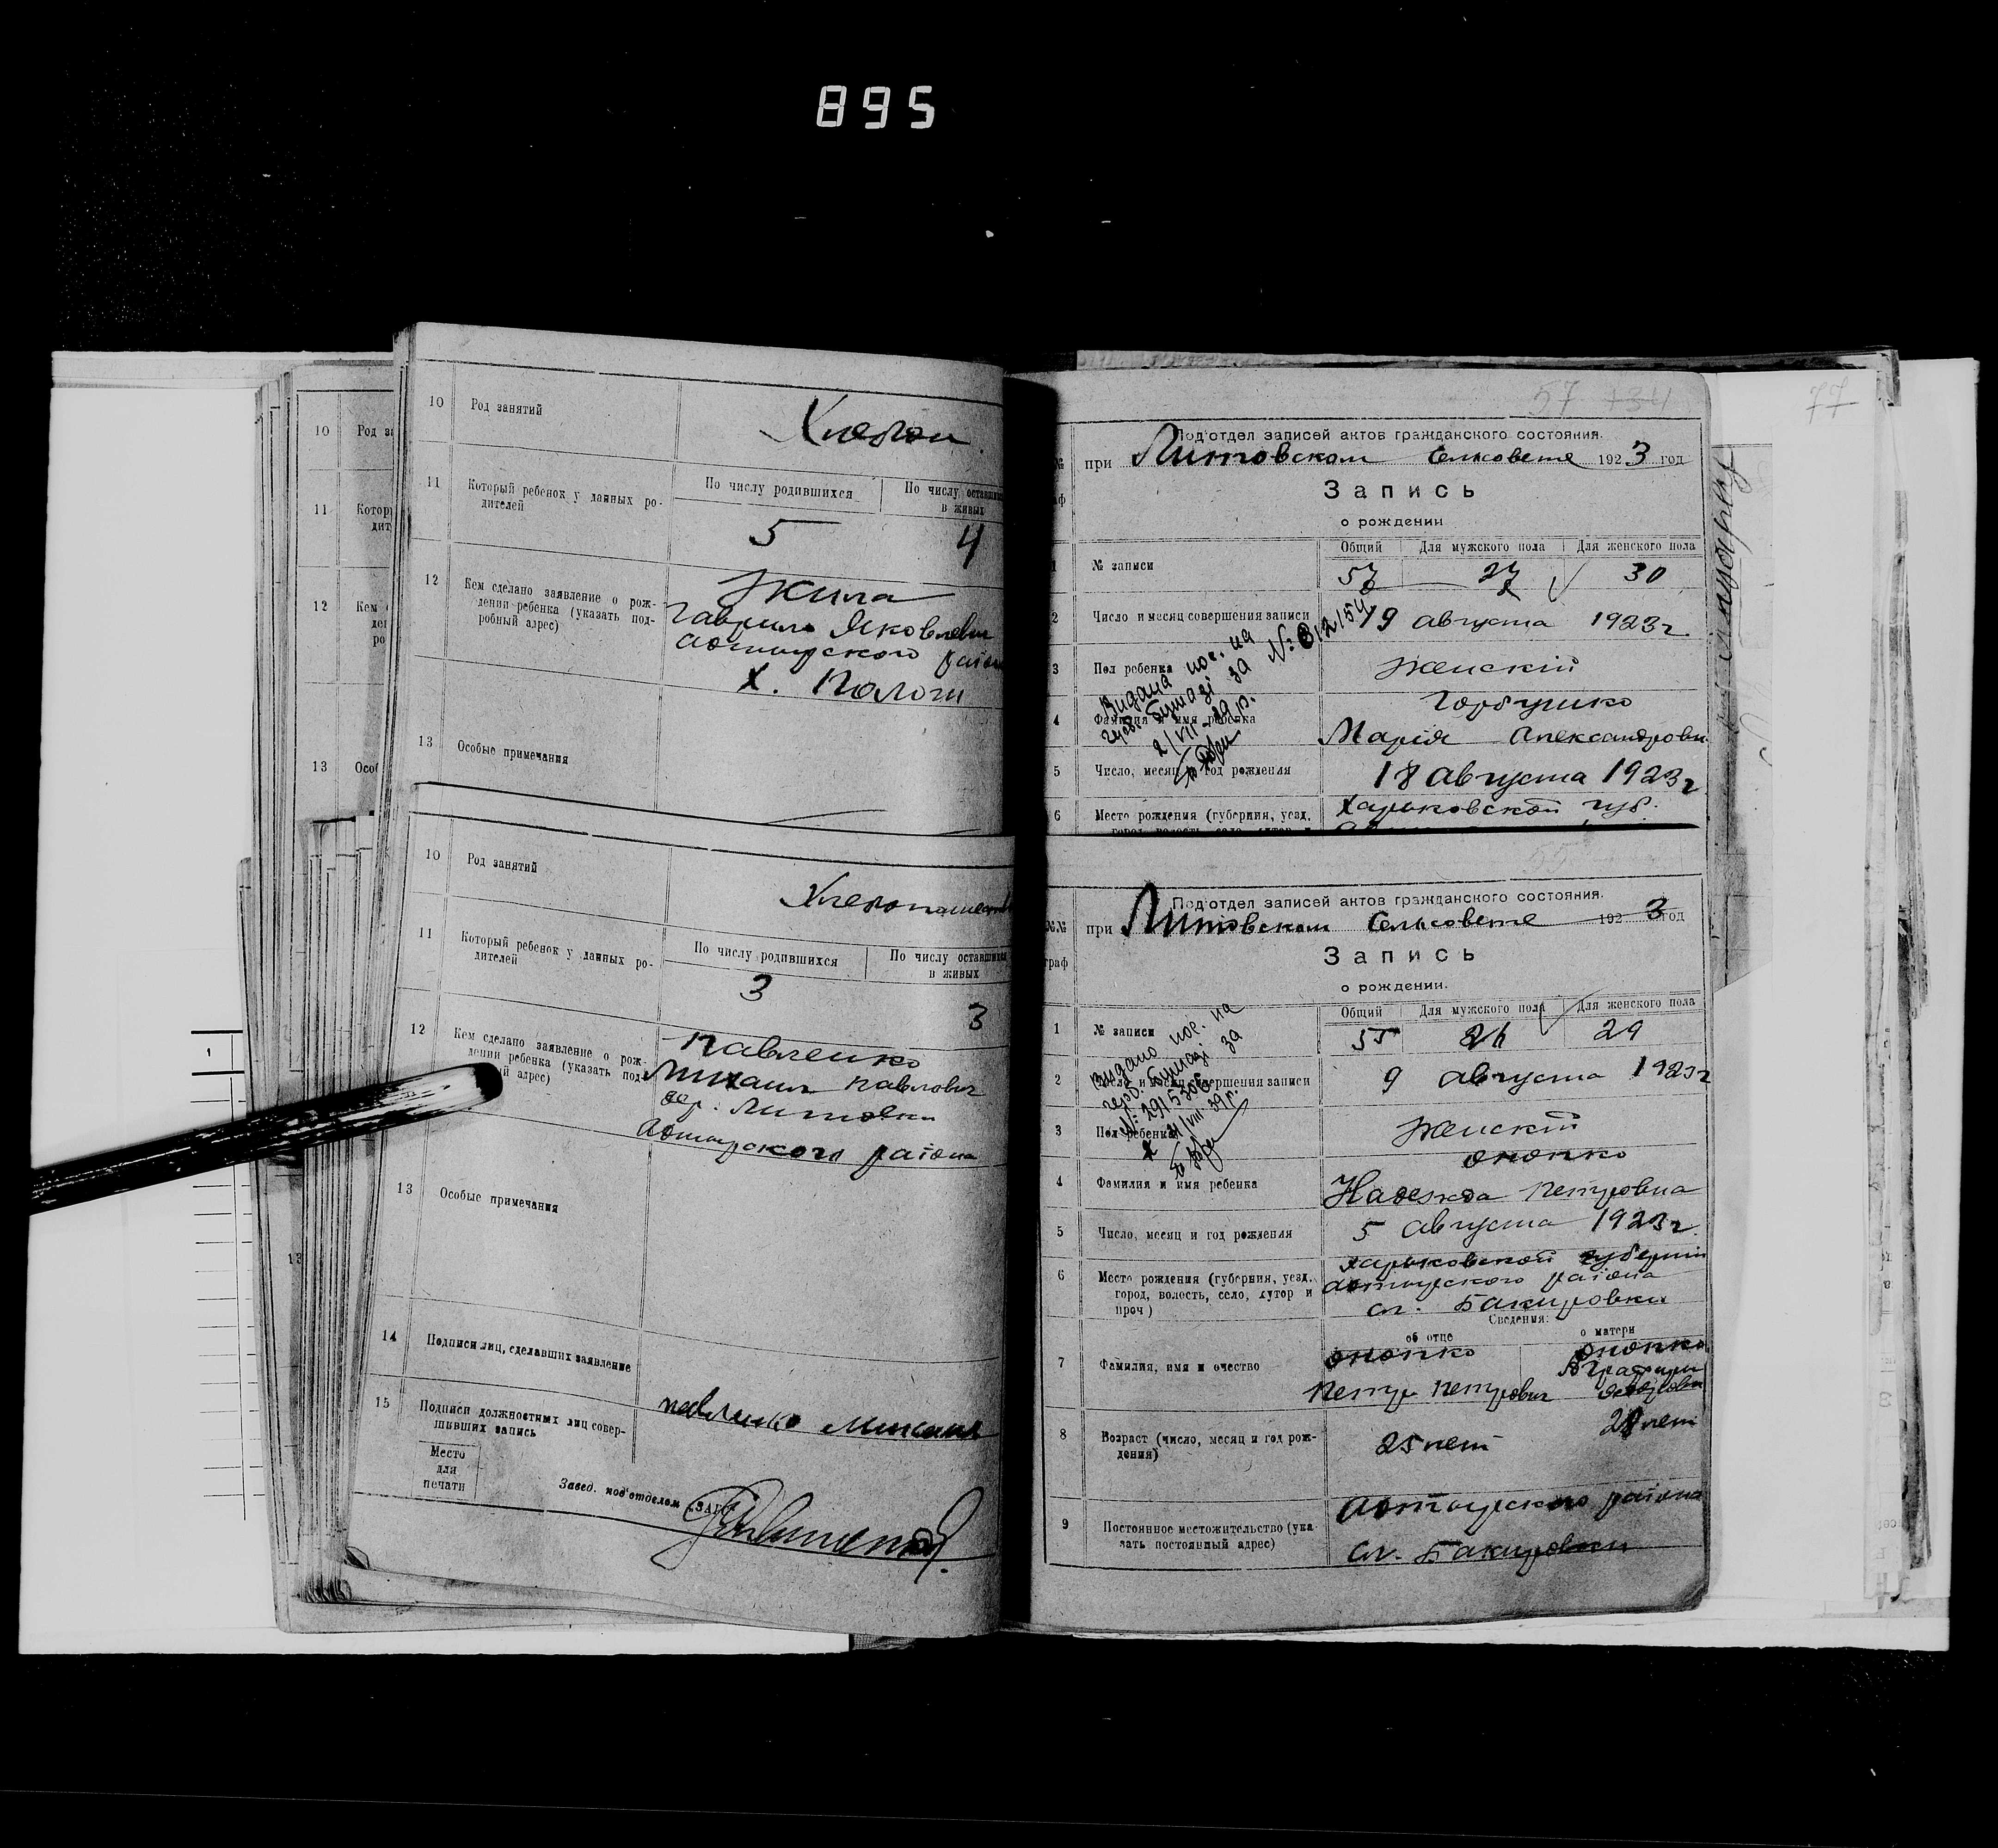 895
77
10 Род занятий
11 Который ребенок у данных ро-
дителей
По числу родившихся
По числу оставшихся
в живых
5 4
12 Кем сделано заявление о рож-
дении ребенка (указать под-
робный адрес)
Жила
Гаврило Яковлевич
района
х. Пологи
13 Особые примечания
10 Род занятий
11 Который ребенок у данных ро-
дителей
По числу родившихся
По числу оставшихся
в живых
3 3
12 Кем сделано заявление о рож-
дении ребенка (указать под-
ый адрес)
Павленко
Михаил Павлович
дер. Литовки
района
13 Особые примечания
14 Подписи лиц, сделавших заявление
15 Подписи должностных лиц совер-
шивших запись
Павленко Михаил
Место
для
печати
Завед. под'отделом ЗАГС
57
Под'отдел записей актов гражданского состояния.
при Литовском Сельсовете 1923 год
Запись
о рождении
Общий Для мужского пола Для женского пола
1 № записи
57 27 30
2 Число и месяц совершения записи
19 августа 1923 г
3 Пол ребенка
женскій
4 Фамилия и имя ребенка
Горбушко
Марія Александровн
5 Число, месяц и год рождения
18 августа 1923 г
6 Место рождения (губерния, уезд,
Харьковской губ.
Видана пос. на
герб. бумазі за № 312154
2/VII-39 р.
55
Под'отдел записей актов гражданского состояния.
№№
граф
при Литовском Сельсовете 1923 год
Запись
о рождении.
Общий Для мужского пола Для женского пола
1 № записи
55 26 29
2 Число и месяц совершения записи
9 августа 1923 г
3 Пол ребенка
женскій
4 Фамилия и имя ребенка
Онопко
Надежда Петровна
5 Число, месяц и год рождения
5 августа 1923 г.
6 Место рождения (губерния, уезд,
город, волость, село, хутор и
проч)
Харьковской губерніи
района
сл. Бакировки
Видано пос. на
герб. бумазі за
39 р.
Сведения:
об отце о матери
7 Фамилия, имя и очество
Онопко Онопко
Петр Петрович
8 Возраст (число, месяц и год рож-
дения)
25 лет 28 лет
9 Постоянное местожительство (ука-
зать постоянный адрес)
района
сл. Бакировки